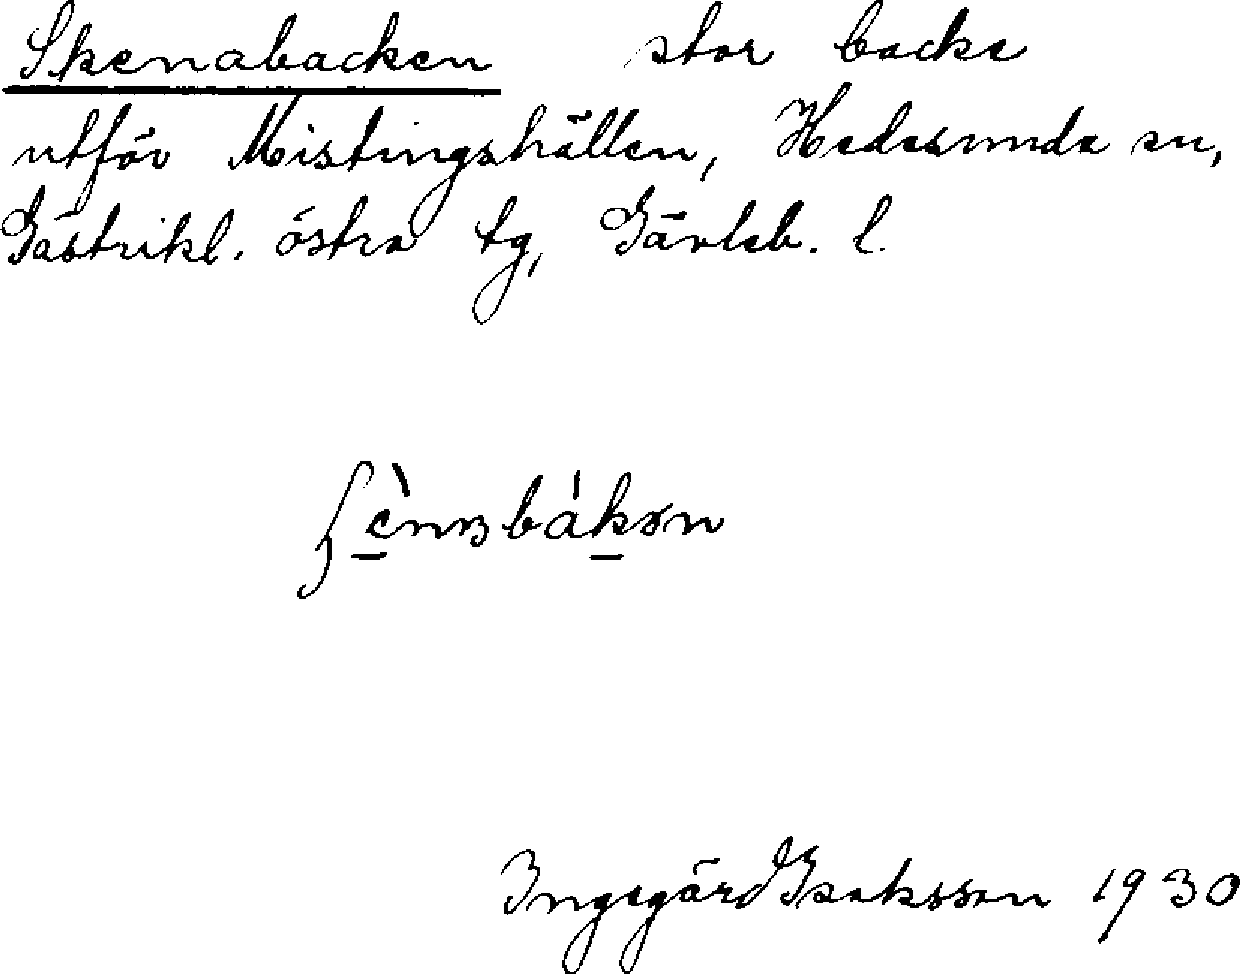 Skenabacken stor backe
utför Mistingshällen, Hedesunda sn,
Gästrikl. östra tg, Gävleb. l.
Ingegärd Isaksson 1930